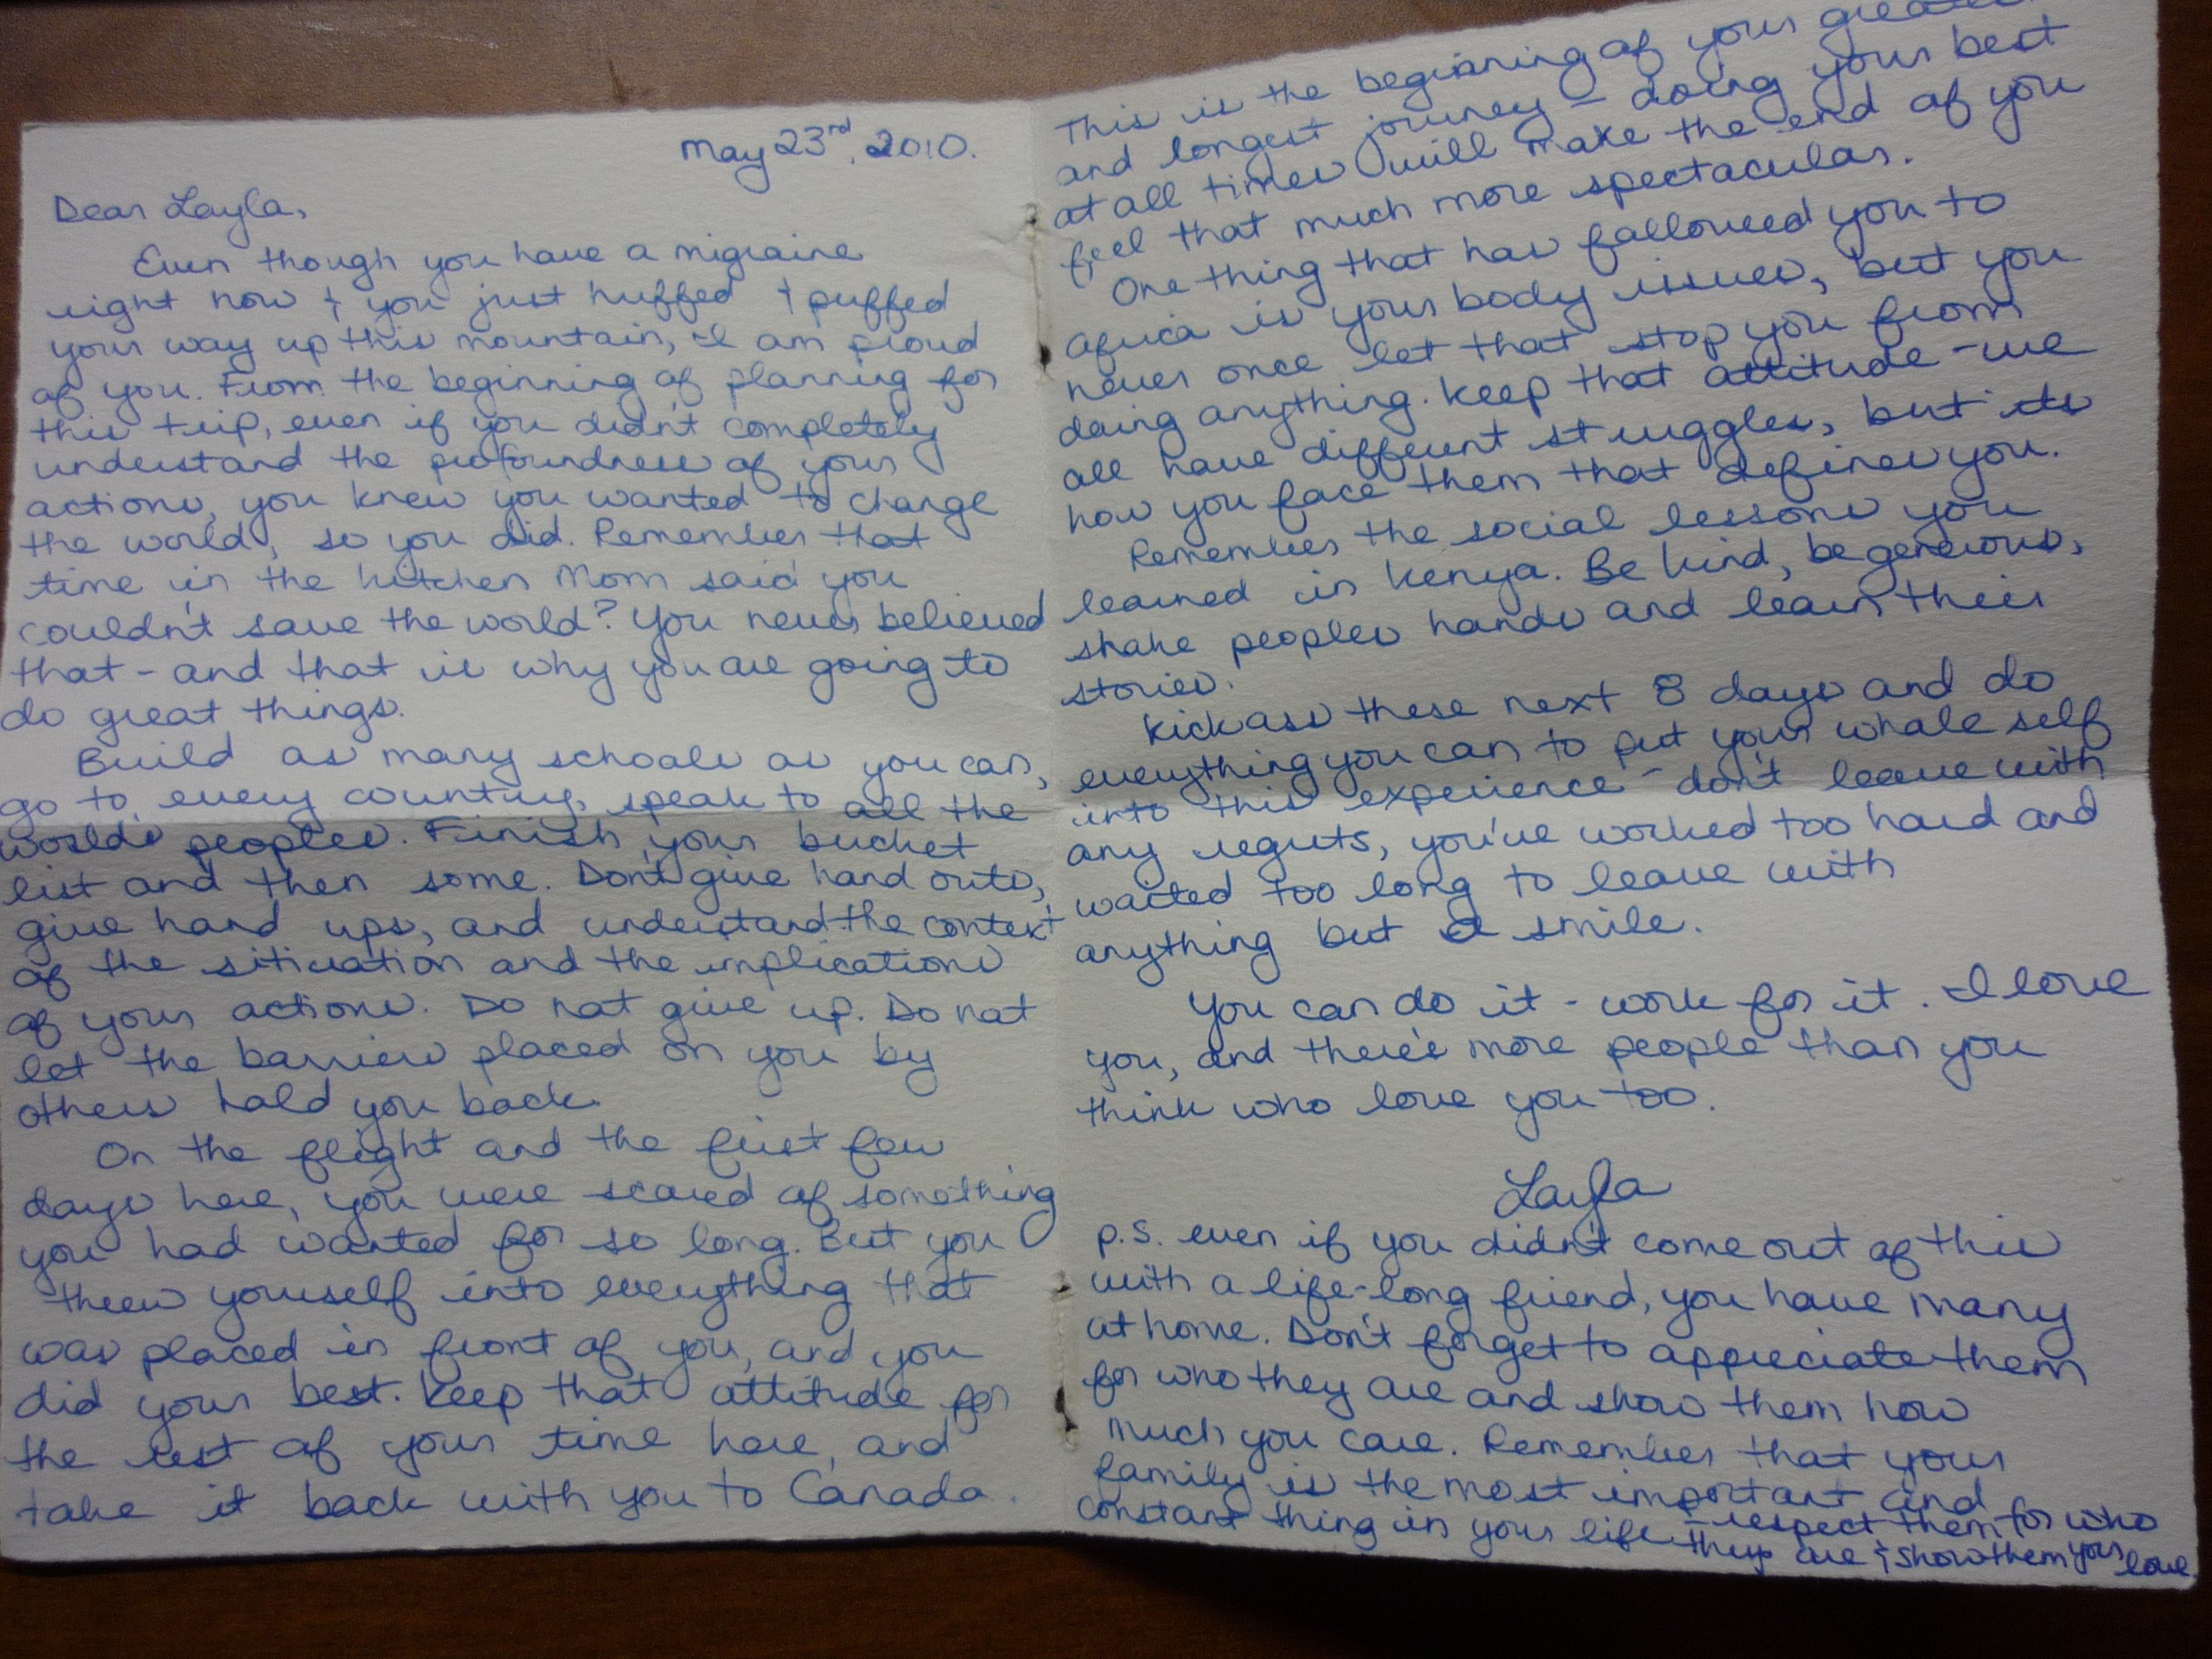 May 23rd, 2010.
Dear Layla,
Even though you have a migraine
right now & you just huffed & puffed
your way up this mountain, I am proud
of you. From the beginning of planning for
this trip, even if you didn't completely
understand the profoundness of your
actions, you knew you wanted to change
the world, so you did. Remember that
time in the kitchen Mom said you
couldn't save the world? You never believed
that - and that is why you are going to
do great things.
Build as many schools as you can,
go to every country, speak to all the
worlds peoples. Finish your bucket
list and then some. Don't give hand outs,
give hand ups, and understand the context
of the sitiuation and the implications
of your actions. Do not give up. Do not
let the barriers placed on you by
others hold you back.
On the flight and the first few
days here, you were scared of something
you had wanted for so long. But you
threw yourself into everything that
was placed in front of you, and you
did your best. Keep that attitude for
the rest of your time here, and
take it back with you to Canada.
This is the beginning of your
and longest journey - doing your best
at all times will make the end of you
feel that much more spectacular.
One thing that has followed you to
Africa is your body issues, but you
never once let that stop you from
doing anything. Keep that attitude - we
all have different struggles, but its
how you face them that defines you.
Remember the social lessons you
learned in Kenya. Be kind, be generous,
shake peoples hands and learn their
stories.
Kick ass these next 8 days and do
everything you can to put your whole self
into this experience - don't leave with
any regrets, you've worked too hard and
waited too long to leave with
anything but a smile.
You can do it - work for it. I love
you, and there's more people than you
think who love you too.
Layla
p.s. even if you didn't come out of this
with a life-long friend, you have many
at home. Don't forget to appreciate them
for who they are and show them how
much you care. Remember that your
family is the most important and
constant thing in your life - respect them for who
they are & show them your love.